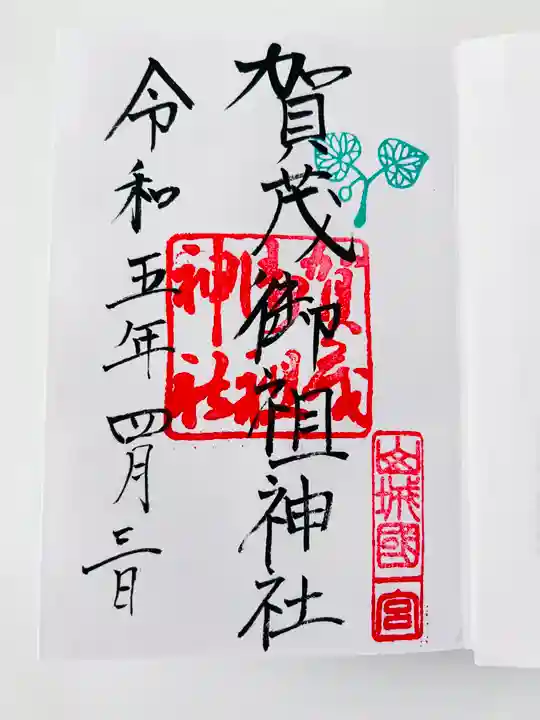 賀茂御祖神社
賀茂
御祖
神社
山城國
一宮
令和五年四月三日